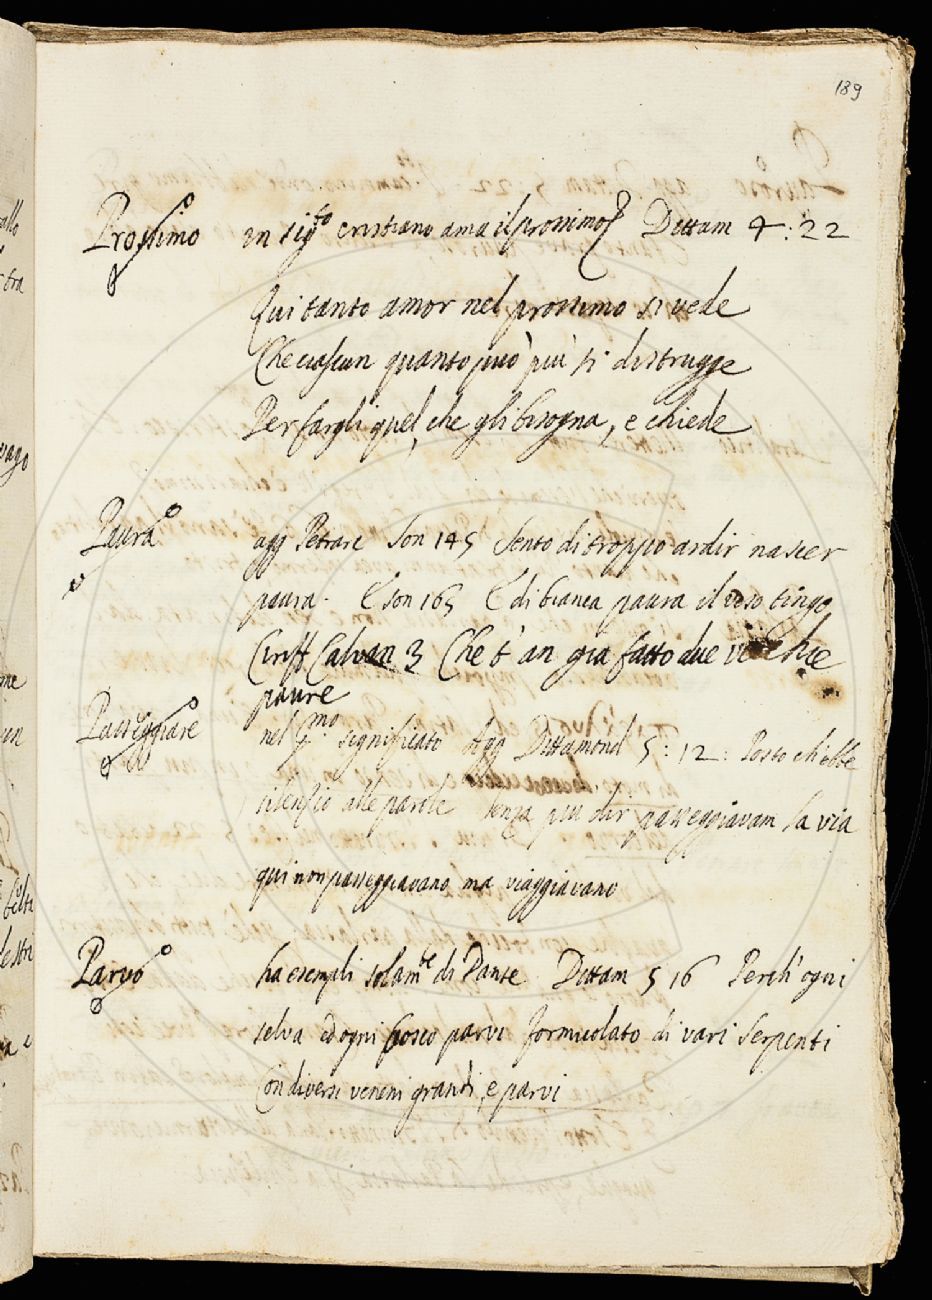 189
Prossimo in sig.to cristiano ama il prossimo Dittam 4:22
Qui tanto amor nel prossimo si vede
Che ciascun quanto può più si distrugge
Per fargli quel, che gli bisogna, e chiede
Paura agg Petrarc Son 145 Sento di troppo ardir nascer
paura. E son 165 E di bianca paura il viso tingo
Ciriff Calvan 3 Che t'an già fatto due vecchie
paure
Passeggiare nel p.mo significato Agg Dittamond 5:12: Posto ch'ebbe
silenzio alle parole senza più dir passeggiavam la via
qui non passeggiavano ma viaggiavano
Parvo ha esempli solam.te di Dante Dittam 5 16 Perch'ogni
selva ed ogni bosco parvi formicolato di vari Serpenti
Con diversi veneni grandi, e parvi